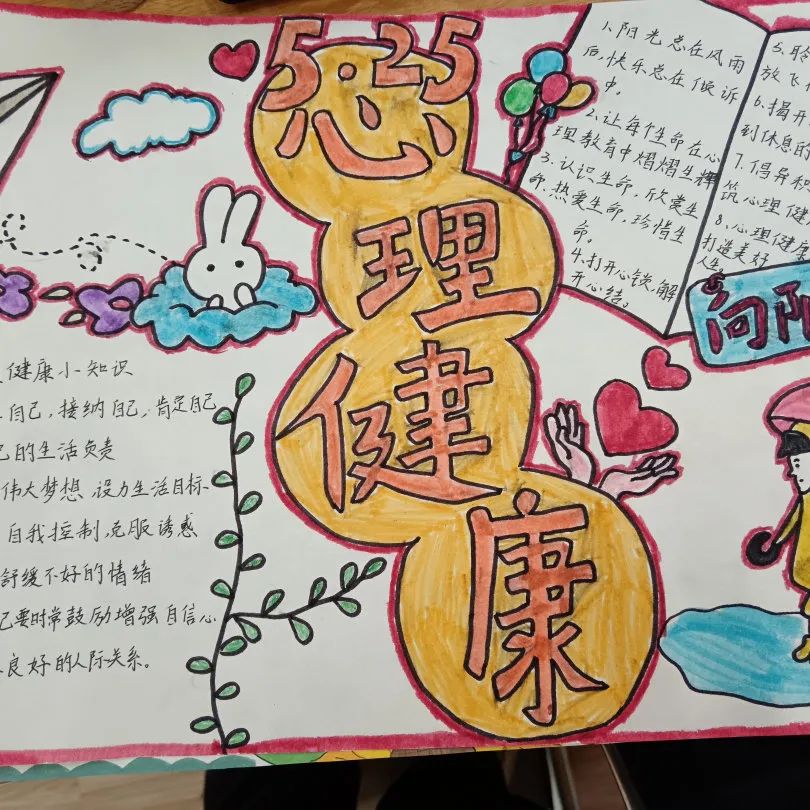 5·25
心
理
健
康
1.阳光总在风雨
后,快乐总在倾诉
中。
2.让每个生命在心
理教育中熠熠生辉
3.认识生命,欣赏生
命,热爱生命,珍惜生
命。
4.打开心锁,解
开心结。
5.聆
放飞
6.揭开
到休息的
7.倡导
筑心理健
8.心理健康
打造美好
人生
向阳
健康小知识
自己,接纳自己,肯定自己
己的生活负责
伟大梦想 设力生活目标
自我控制,克服诱惑
舒缓不好的情绪
己要时常鼓励增强自信心
良好的人际关系。